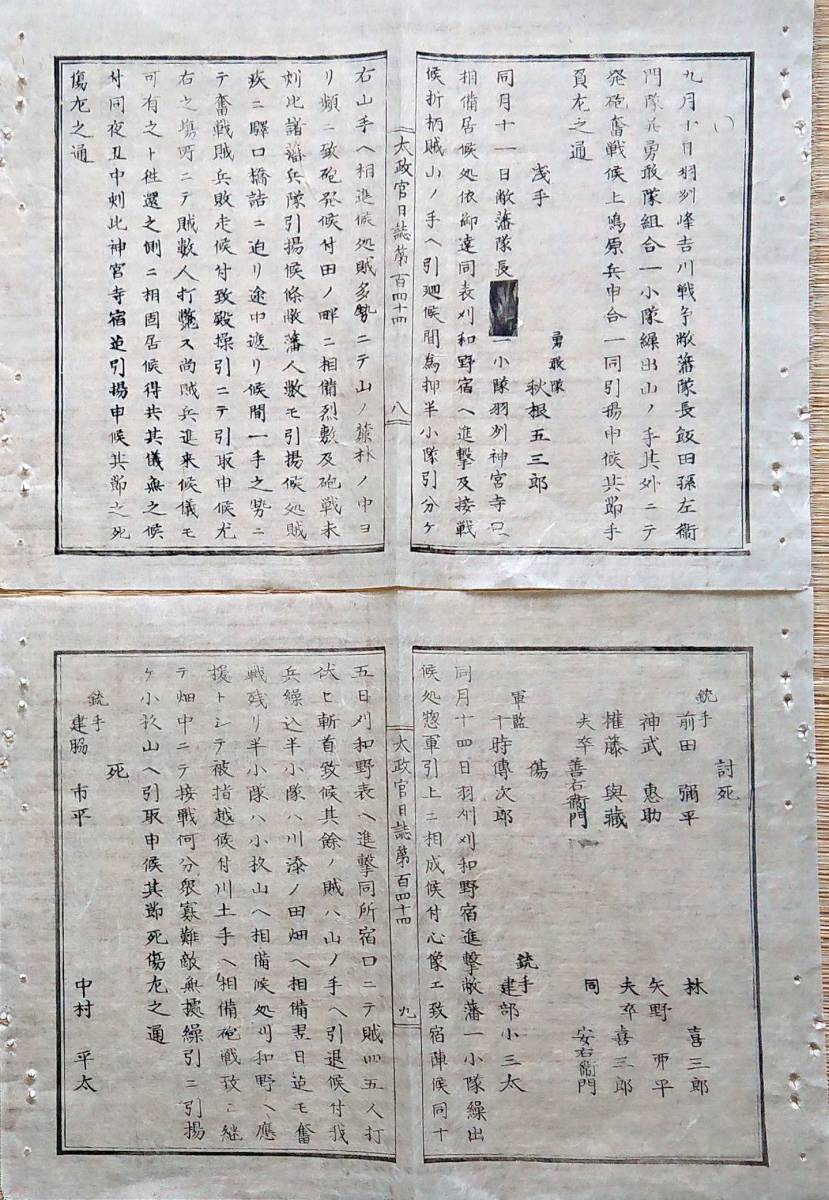 い
九月十日羽州峰吉川戦争敝藩隊長飯田孫左衞
門隊并勇敢隊組合一小隊繰出山ノ手其外ニテ
発砲奮戦候上嶋原兵申合一同引揚申候其節手
負左之通
勇敢隊
浅手 秋根五三郎
同月十一日敝藩隊長 一小隊羽州神宮寺口ニ
相備居候処依御達同表刈和野宿ヘ進撃及接戦
候折柄賊山ノ手ヘ引廻候間為抑半小隊引分ケ
太政官日誌第百四十四 八
右山手ヘ相進候処賊多勢ニテ山ノ麓林ノ中ヨ
リ頻ニ致砲発候付田ノ畔ニ相備烈敷及砲戦未
刻比諸藩兵隊引揚候條敝藩人数モ引揚候処賊
疾ニ驛口橋詰ニ迫リ途中遮リ候間一手之勢ニ
テ奮戦賊兵敗走候付致殿操引ニテ引取申候尤
右之場所ニテ賊数人打斃ス尚賊兵進来候儀モ
可有之ト徃還之側ニ相固居候得共其儀無之候
付同夜丑中刻比神宮寺宿迄引揚申候其節之死
傷左之通
討死
銃手 前田彌平 林喜三郎
神武惠助 矢野市平
權藤與藏 夫卒喜三郎
夫卒善右衞門 同安右衞門
傷
軍監 十時傳次郎 銃手 建部小三太
同月十四日羽州刈和野宿進撃敝藩一小隊繰出
候処惣軍引上ニ相成候付心像エ致宿陣候同十
太政官日誌第百四十四 九
五日刈和野表ヘ進撃同所宿口ニテ賊四五人打
伏セ斬首致候其餘ノ賊ハ山ノ手ヘ引退候付我
兵繰込半小隊ハ川添ノ田畑ヘ相備翌日迄モ奮
戦残リ半小隊ハ小杦山ヘ相備候処刈和野ヘ應
援トシテ被指越候付川土手ヘ相備砲戦攻ニ継
テ畑中ニテ接戦何分衆寡難敵無據繰引ニ引揚
ケ小杦山ヘ引取申候其節死傷左之通
死
銃手 建脇市平 中村平太